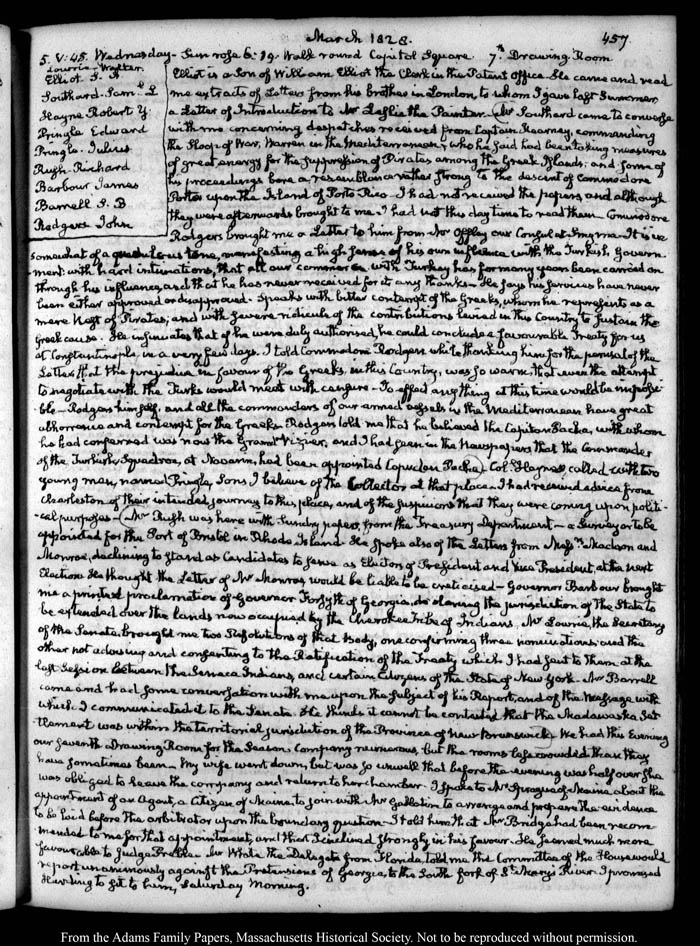 March 1828.
457
5. V:45. Wednesday - Sun rose 6:19. Walk round Capitol Square. 7th Drawing Room
Lowrie - Walter
Elliot S. A
Southard Sam. L
Hayne Robert Y.
Pringle Edward
Pringle. Julius
Rush Richard
Barbour James
Barrell G. B
Rodgers John
Elliot is a Son of William Elliot the Clerk in the Patent office. He came and read
me extracts of Letters from his brother in London, to whom I gave last Summer
a Letter of Introduction to Mr Leslie the Painter. Mr Southard came to converse
with me concerning despatches received from Captain Kearney, commanding
the Sloop of War, Warren in the Mediterranean, who he said had been taking measures
of great energy for the suppression of Pirates among the Greek Islands; and some of
his proceedings bore a resemblance rather strong to the descent of Commodore
Porter upon the Island of Porto Rico. I had not received the papers and although
they were afterwards brought to me, I had not this day time to read them. Commodore
Rodgers brought me a Letter to him from Mr Offley our Consul at Smyrna. It is
somewhat of a querulous tone, manifesting a high sense of his own influence with the Turkish Govern-
ment: with hard intimations, that all our commerce with Turkey has for many years been carried on
through his influence, and that he has never received for it any thanks - He says his services have never
been either approved or disapproved. Speaks with bitter contempt of the Greeks, whom he represents as a
mere Nest of Pirates; and with severe ridicule of the contributions levied in this Country to sustain the
Greek cause. He insinuates that if he were duly authorised, he could conclude a favourable Treaty for us
at Constantinople in a very few days. I told Commodore Rodgers while thanking him for the perusal of the
Letter, that the prejudice in favour of the Greeks, in this Country, was so warm that even the attempt
to negotiate with the Turks would meet with censure - To effect any thing at this time would be impossi-
ble - Rodgers himself, and all the commanders of our armed vessels in the Mediterranean have great
abhorrence and contempt for the Greeks. Rodgers told me that he believed the Capitan Pacha, with whom
he had conferred was now the Grand Vizier, and I had seen in the Newspapers that the Commander
of the Turkish Squadron, at Navarin, had been appointed Capudan Pacha. Col. Hayne, called with two
young men, named Pringle, Sons I believe of the Collector at that place. I had received advice from
Charleston of their intended journey to this place, and of the suspicions that they were coming upon politi-
cal purposes - Mr Rush was here with sundry papers, from the Treasury Department - a Surveyor to be
appointed for the Port of Bristol in Rhode Island. He spoke also of the Letters from Messrs Madison and
Monroe, declining to stand as Candidates to serve as Electors of President and Vice President, at the next
Election. He thought the Letter of Mr Monroe, would be liable to be criticised - Governor Barbour brought
me a printed proclamation of Governor Forsyth of Georgia, declaring the jurisdiction of the State to
be extended over the lands now occupied by the Cherokee Tribe of Indians. Mr Lowrie, the Secretary
of the Senate, brought me two Resolutions of that body, one confirming three nominations; and the
other not advising and consenting to the Ratification of the Treaty which I had sent to them at the
last Session between the Seneca Indians, and certain Citizens of the State of New York. Mr Barrell
came and had some conversation with me upon the subject of his Report, and of the Message with
which I communicated it to the Senate. He thinks it cannot be contended that the Madawaska Set-
tlement was within the territorial jurisdiction of the Province of New Brunswick. We had this Evening
our seventh Drawing Room for the Season. Company numerous, but the rooms less crowded than they
have sometimes been - My wife went down, but was so unwell that before the evening was half over she
was obliged to leave the company and return to her chamber. I spoke to Mr Sprague of Maine about the
appointment of an Agent, a Citizen of Maine, to join with Mr Gallatin to arrange and prepare the evidence
to be laid before the arbitrator upon the boundary question. I told him that Mr Bridge had been recom-
mended to me for that appointment, and that I inclined strongly in his favour. He seemed much more
favourable to Judge Preble. Mr White the Delegate from Florida, told me the Committee of the House would
report unanimously against the Pretensions of Georgia, to the South fork of St. Mary's River. I promised
Harding to sit to him, Saturday Morning.
From the Adams Family Papers, Massachusetts Historical Society. Not to be reproduced without permission.